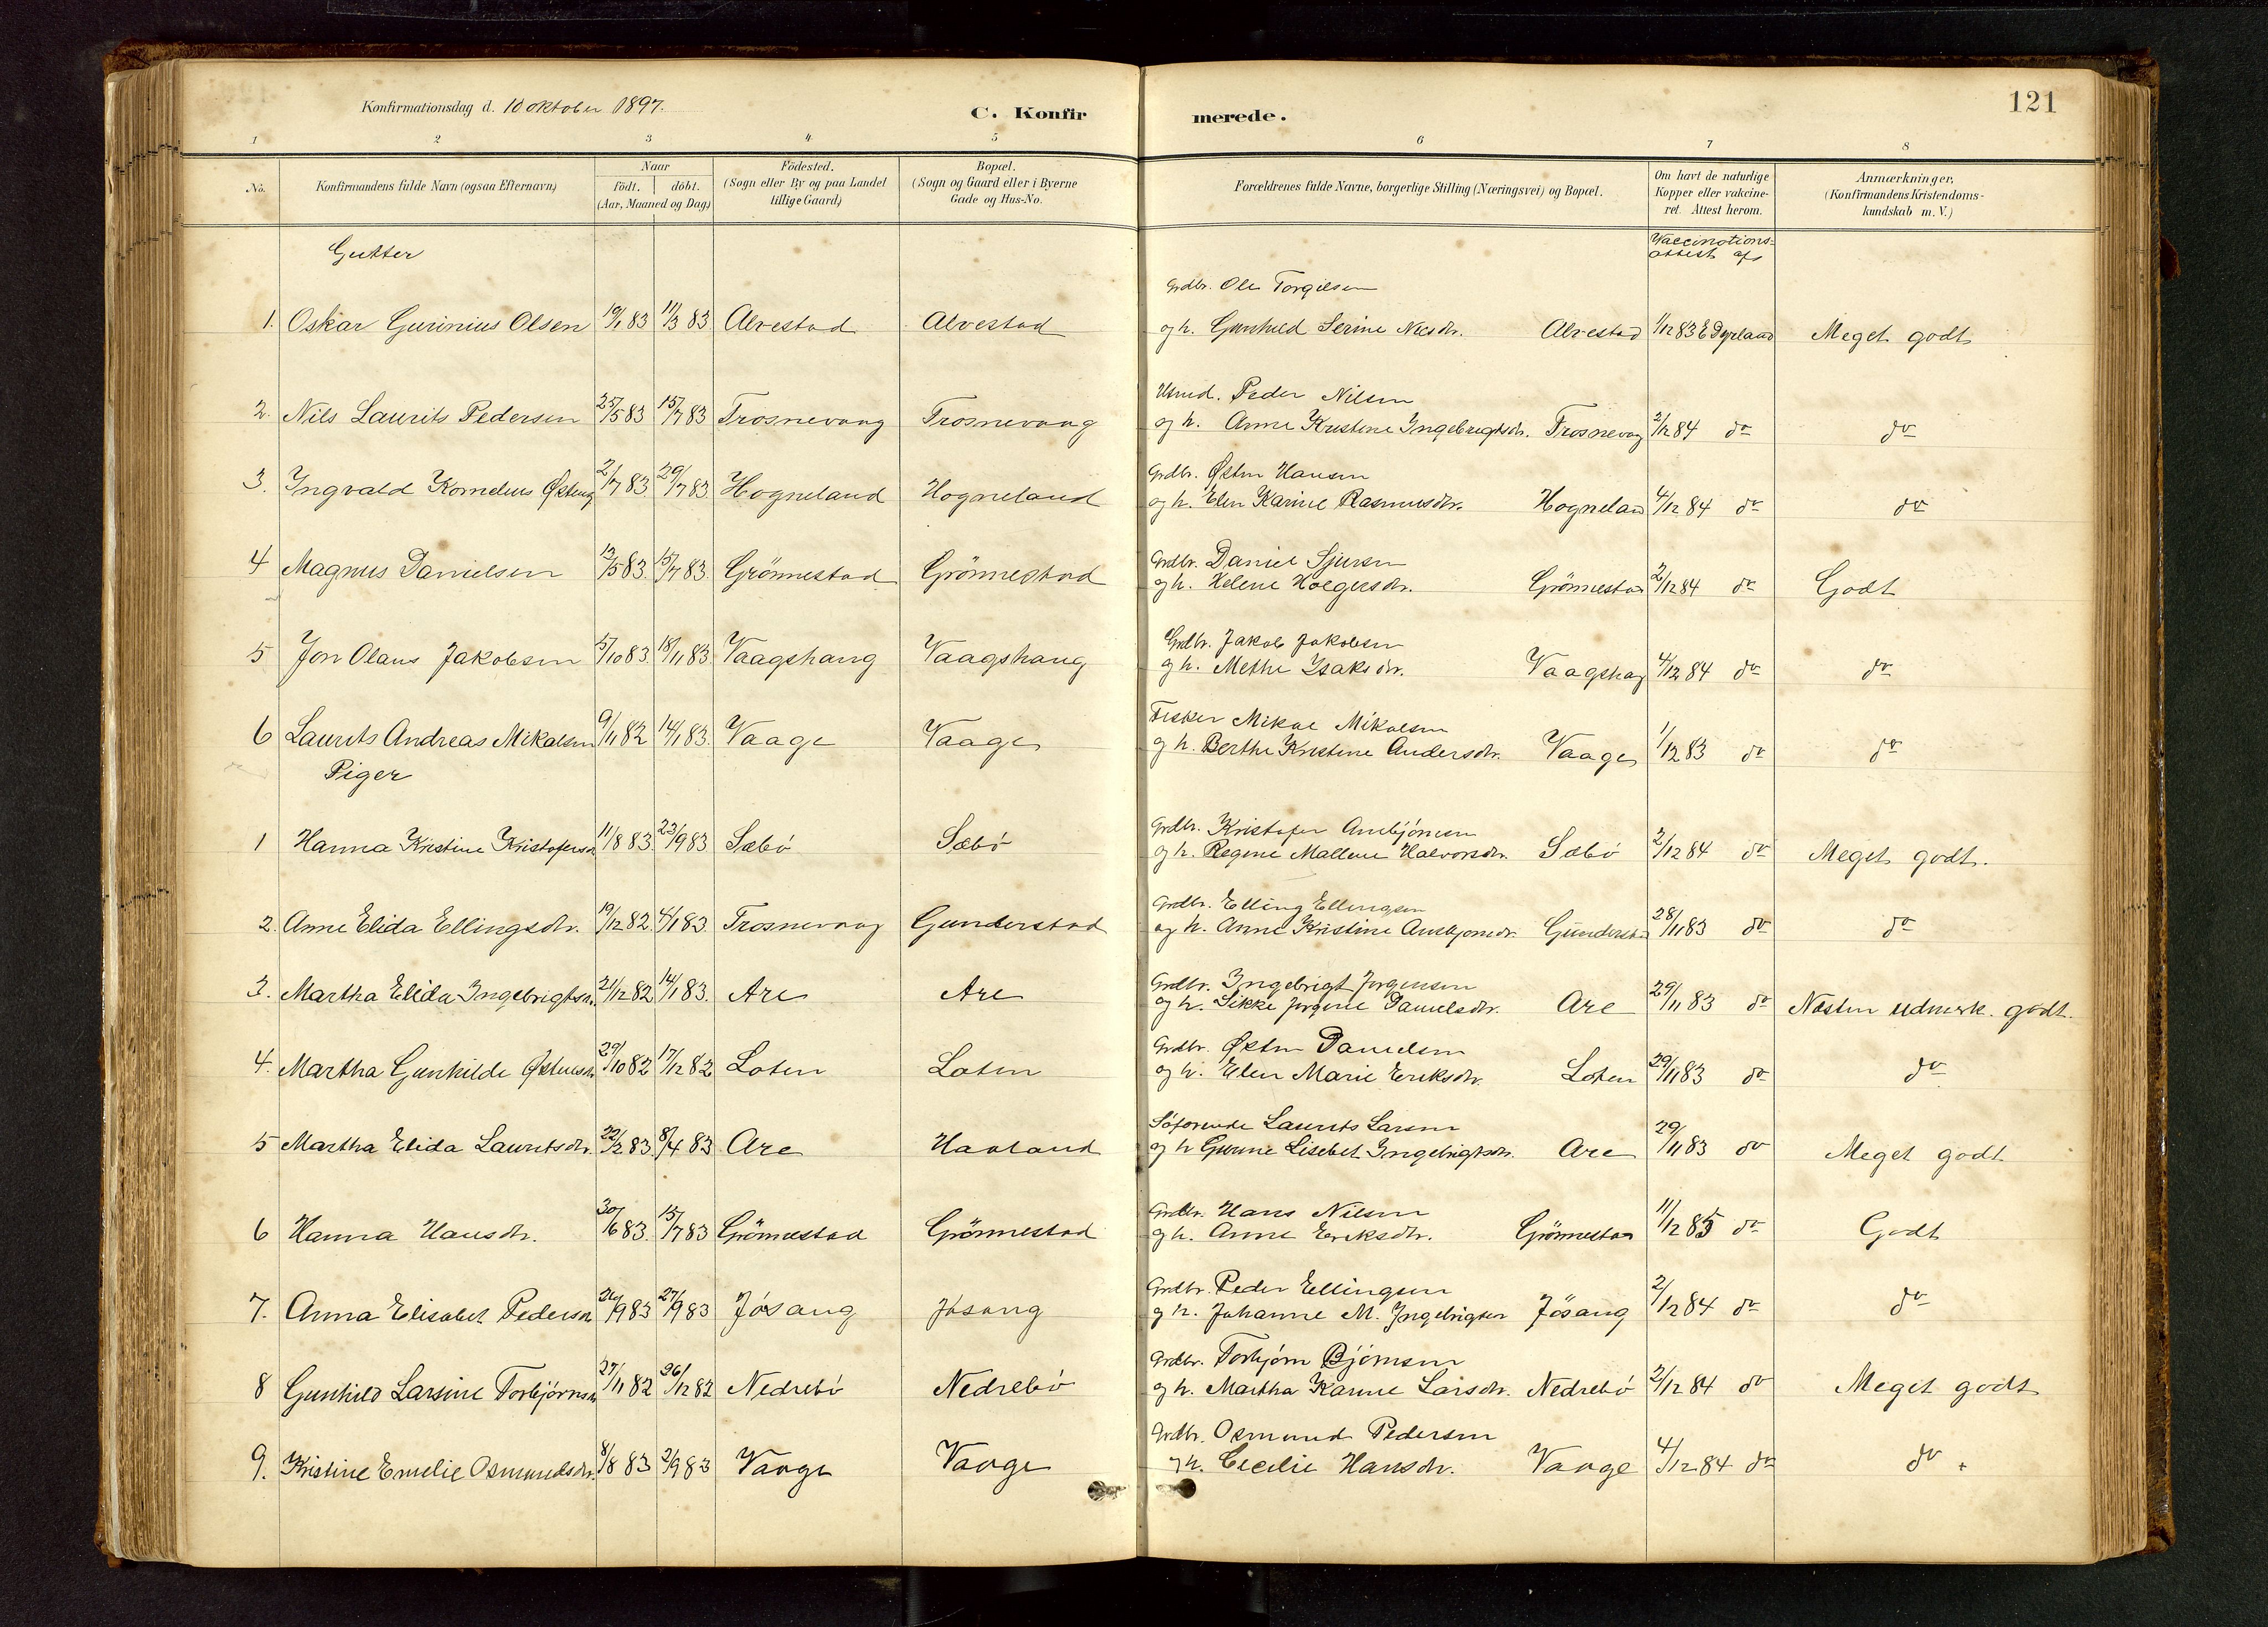 Konfirmationsdag d. 10 oktober 1897.
C. Konfirmerede.
121
1 2 3 4 5 6 7 8
No.
Konfirmandens fulde Navn (ogsaa Efternavn)
Naar
födt. döbt.
(Aar, Maaned og Dag)
Födested.
(Sogn eller By og paa Landet
tillige Gaard)
Bopæl.
(Sogn og Gaard eller i Byerne
Gade og Hus-No.
Forældrenes fulde Navne, borgerlige Stilling (Næringsvei) og Bopæl.
Om havt de naturlige
Kopper eller vakcine-
ret. Attest herom.
Anmærkninger,
(Konfirmandens Kristendoms-
kundskab m. V.)
Gutter
Vaccinations-
attest af
Grdbr. Ole Torgilsen
1. Oskar Gurinius Olsen 19/1 83 11/3 83 Alvestad Alvestad og h. Gunhild Serine Nilsdtr. Alvestad 1/12 83 E Dyrland Meget godt
Usmd. Peder Nilsen
2. Nils Laurits Pedersen 25/5 83 15/7 83 Trosnevaag Trosnevaag og h. Anne Kristine Ingebrigtsdtr. Trosnevag 2/12 84 do do
Grdbr. Østen Hansen
3. Ingvald Kornelius Østens 2/7 83 29/7 83 Hogneland Hogneland og h. Elen Karine Rasmusdtr. Hogneland 4/12 84 do do
Grdbr. Daniel Sjursen
4 Magnus Danielsen 13/5 83 15/7 83 Grönnestad Grönnestad og h. Helene Holgersdtr. Grönnestad 2/12 84 do Godt
Grdbr. Jakob Jakobsen
5 Jon Olaus Jakobsen 5/10 83 18/11 83 Vaagshaug Vaagshaug og h. Methe Isaksdtr. Vaagshag 4/12 84 do do
Fisker Mikal Mikalsen
6 Laurits Andreas Mikalsen 9/11 82 14/1 83 Vaage Vaage og h. Berthe Kristine Andersdtr. Vaage 1/12 83 do do
Piger
Grdbr. Kristofer Arnbjörnsen
1 Hanna Kristine Kristofersd 11/8 83 23/9 83 Sæbö Sæbö og h. Regine Mallene Halvorsdtr. Sæbö 2/12 84 do Meget godt.
Grdbr. Elling Ellingsen
2. Anne Elida Ellingsdtr. 19/12 82 4/1 83 Trosnevaag Gunderstad og h. Anne Kristine Ansbjornsdr. Gunderstad 28/11 83 do do
Grdbr. Ingebrigt Jorgensen
3. Martha Elida Ingebrigtsd. 21/12 82 14/1 83. Are Are og h. Sikke Jorgine Danielsdtr. Are 29/11 83 do Næsten udmerk. godt.
Grdbr. Østen Danielsen
4. Martha Gunhilde Østensd 29/10 82 17/12 82 Loten Loten og h. Elen Marie Eriksdtr. Loten 29/11 83 do do
Söfarende Laurits Larsen
5 Martha Elida Lauritsdtr. 22/2 83 8/4 83 Are Haaland og h Gurine Lisebet Ingebrigtsdtr. Are 29/11 83 do Meget godt
Grdbr. Hans Nilsen
6 Hanna Hansdtr. 30/6 83. 15/7 83 Grönnestad Grönnestad og h. Anne Eriksdtr. Grönnestad 11/12 85 do Godt
Grdbr. Peder Ellingsen
7. Anna Elisabet Pedersd 27/9 83 Jösang Jösang og h. Johanne M. Ingebrigtsen Jösang 2/12 84 do do
Grdbr. Torbjörn Björnsen
8 Gunhild Larsine Torbjörnsd 27/11 82 26/12 82 Nedrebö Nedrebö og h. Martha Karine Larsdtr. Nedrebö 2/12 84 do Meget godt
Grdbr. Osmund Pedersen
9. Kristine Emelie Osmundsdtr. 8/8 83 2/9 83 Vaage Vaage og h. Cecilie Hansdtr. Vaage 4/12 84 do do